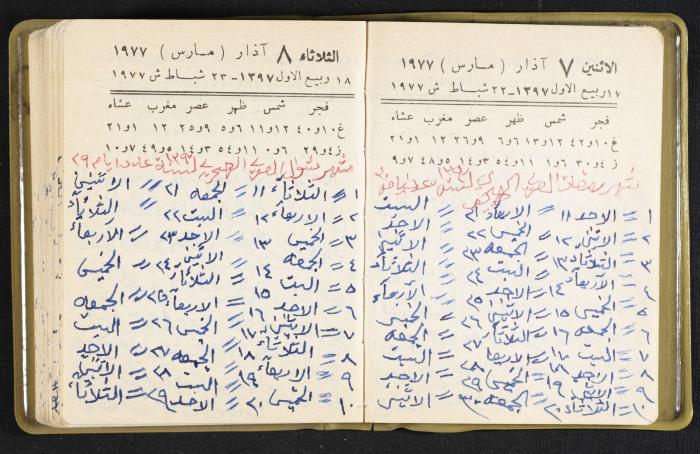 الاثنين ٧ آذار ( مارس ) ١٩٧٧
١٧ ربيع الاول ١٣٩٧ – ٢٢ شباط ش ١٩٧٧
فجر شمس ظهر عصر مغرب عشاء
غ ١٠و٤٢ ١٢و١٣ ٦و٦ ٩و٢٦ ١٢ ١و٢١
ز ٤و٣٠ ٦و١ ١١و٥٤ ٣و١٤ ٥و٤٨ ٧و٩
شهر رمضان العربي الهجري لسنة
١ = الاحد ١١ = الاربعاء ٢١ = السبت
٢ = الاثنين ١٢ = الخميس ٢٢ = الاحد
٣ = الثلاثاء ١٣ = الجمعه ٢٣ = الاثنين
٤ = الاربعاء ١٤ = السبت ٢٤ = الثلاثاء
٥ = الخميس ١٥ = الاحد ٢٥ = الاربعاء
٦ = الجمعه ١٦ = الاثنين ٢٦ = الخميس
٧ = السبت ١٧ = الثلاثاء ٢٧ = الجمعه
٨ = الاحد ١٨ = الاربعاء ٢٨ = السبت
٩ = الاثنين ١٩ = الخميس ٢٩ = الاحد
١٠ = الثلاثاء ٢٠ = الجمعه ٣٠ = الاثنين
الثلاثاء ٨ آذار ( مارس ) ١٩٧٧
١٨ ربيع الاول ١٣٩٧ – ٢٣ شباط ش ١٩٧٧
فجر شمس ظهر عصر مغرب عشاء
غ ١٠و٤٠ ١٢و١١ ٦و٥ ٩و٢٥ ١٢ ١و٢١
ز ٤و٢٩ ٦و٠ ١١و٥٤ ٣و١٤ ٥و٤٩ ٧و١٠
شهر شوال العربي الهجري لسنة ١٣٩٧ عدد ايام ٢٩
١ = الثلاثاء ١١ = الجمعه ٢١ = الاثنين
٢ = الاربعاء ١٢ = السبت ٢٢ = الثلاثاء
٣ = الخميس ١٣ = الاحد ٢٣ = الاربعاء
٤ = الجمعه ١٤ = الاثنين ٢٤ = الخميس
٥ = السبت ١٥ = الثلاثاء ٢٥ = الجمعه
٦ = الاحد ١٦ = الاربعاء ٢٦ = السبت
٧ = الاثنين ١٧ = الخميس ٢٧ = الاحد
٨ = الثلاثاء ١٨ = الجمعه ٢٨ = الاثنين
٩ = الاربعاء ١٩ = السبت ٢٩ = الثلاثاء
١٠ = الخميس ٢٠ = الاحد